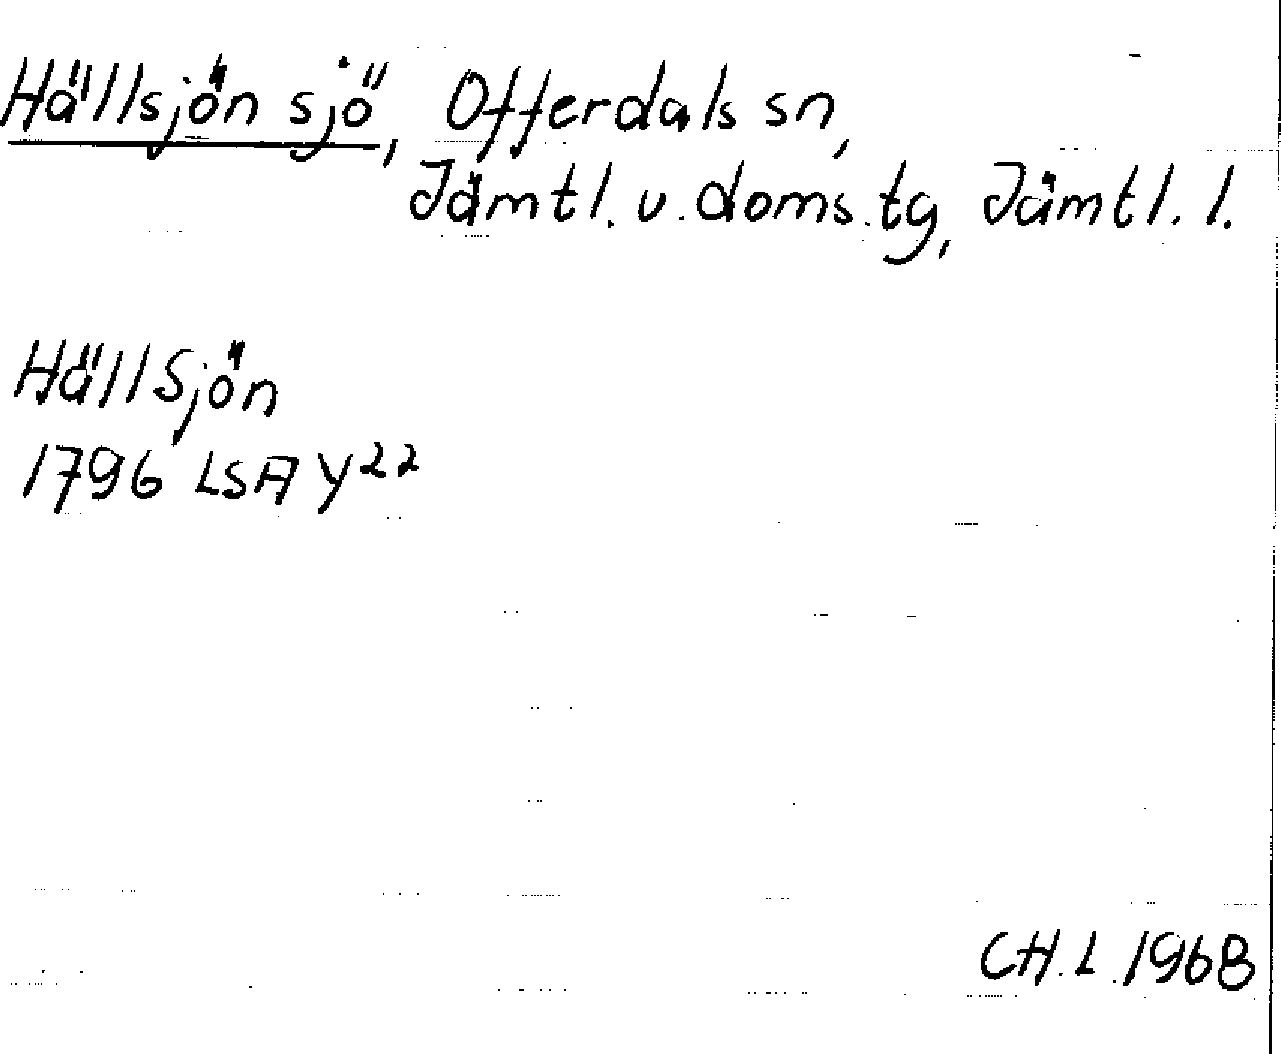 Hällsjön sjö, Offerdals sn,
Jämtl. v. doms. tg, Jämtl. l.
HällSjön
1796 LSA Y²²
CH. L. 1968